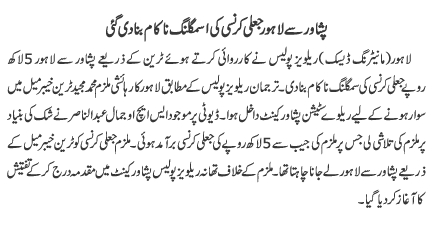 پشاور سے لاہور جعلی کرنسی کی اسمگلنگ ناکام بنا دی گئی
لاہور (مانیٹرنگ ڈیسک) ریلویز پولیس نے کارروائی کرتے ہوئے ٹرین کے ذریعے پشاور سے لاہور 5 لاکھ
روپے جعلی کرنسی کی سمگلنگ ناکام بنا دی۔ ترجمان ریلویز پولیس کے مطابق لاہور کا رہائشی ملزم محمد مجید ٹرین خیبر میل میں
سوار ہونے کے لیے ریلوے سٹیشن پشاور کینٹ داخل ہوا۔ ڈیوٹی پر موجود ایس ایچ او جمال عبدالناصر نے شک کی بنیاد
پر ملزم کی تلاشی لی جس پر ملزم کی جیب سے 5 لاکھ روپے کی جعلی کرنسی برآمد ہوئی۔ ملزم جعلی کرنسی کو ٹرین خیبر میل کے
ذریعے پشاور سے لاہور لے جانا چاہتا تھا۔ ملزم کے خلاف تھانہ ریلویز پولیس پشاور کینٹ میں مقدمہ درج کر کے تفتیش
کا آغاز کر دیا گیا۔